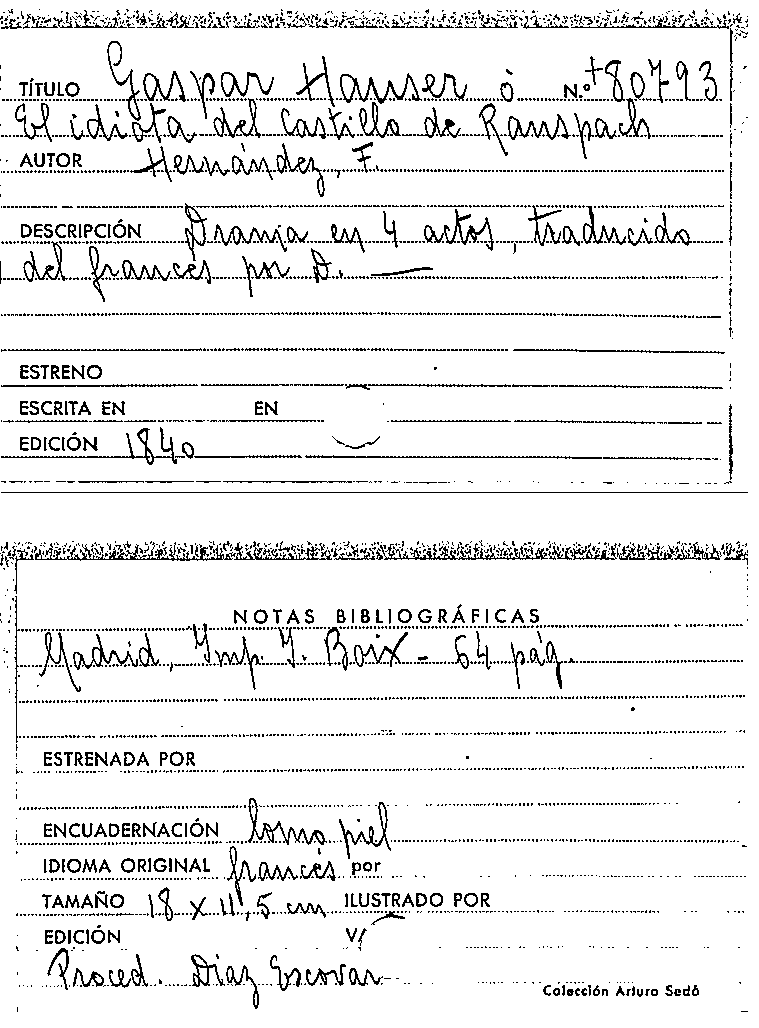 TÍTULO Gaspar Hauser ó N.º +80793
El idiota del Castillo de Ranspach
AUTOR Hernández, F.
DESCRIPCIÓN Drama en 4 actos, traducido
del francés por D. —
ESTRENO
ESCRITA EN EN
EDICIÓN 1840
NOTAS BIBLIOGRÁFICAS
Madrid, Imp. I. Boix - 64 pág.
ESTRENADA POR
ENCUADERNACIÓN lomo piel
IDIOMA ORIGINAL francés por
TAMAÑO 18 x 11,5 cm ILUSTRADO POR
EDICIÓN V/
Proced. Díaz Escovar
Colección Arturo Sedó